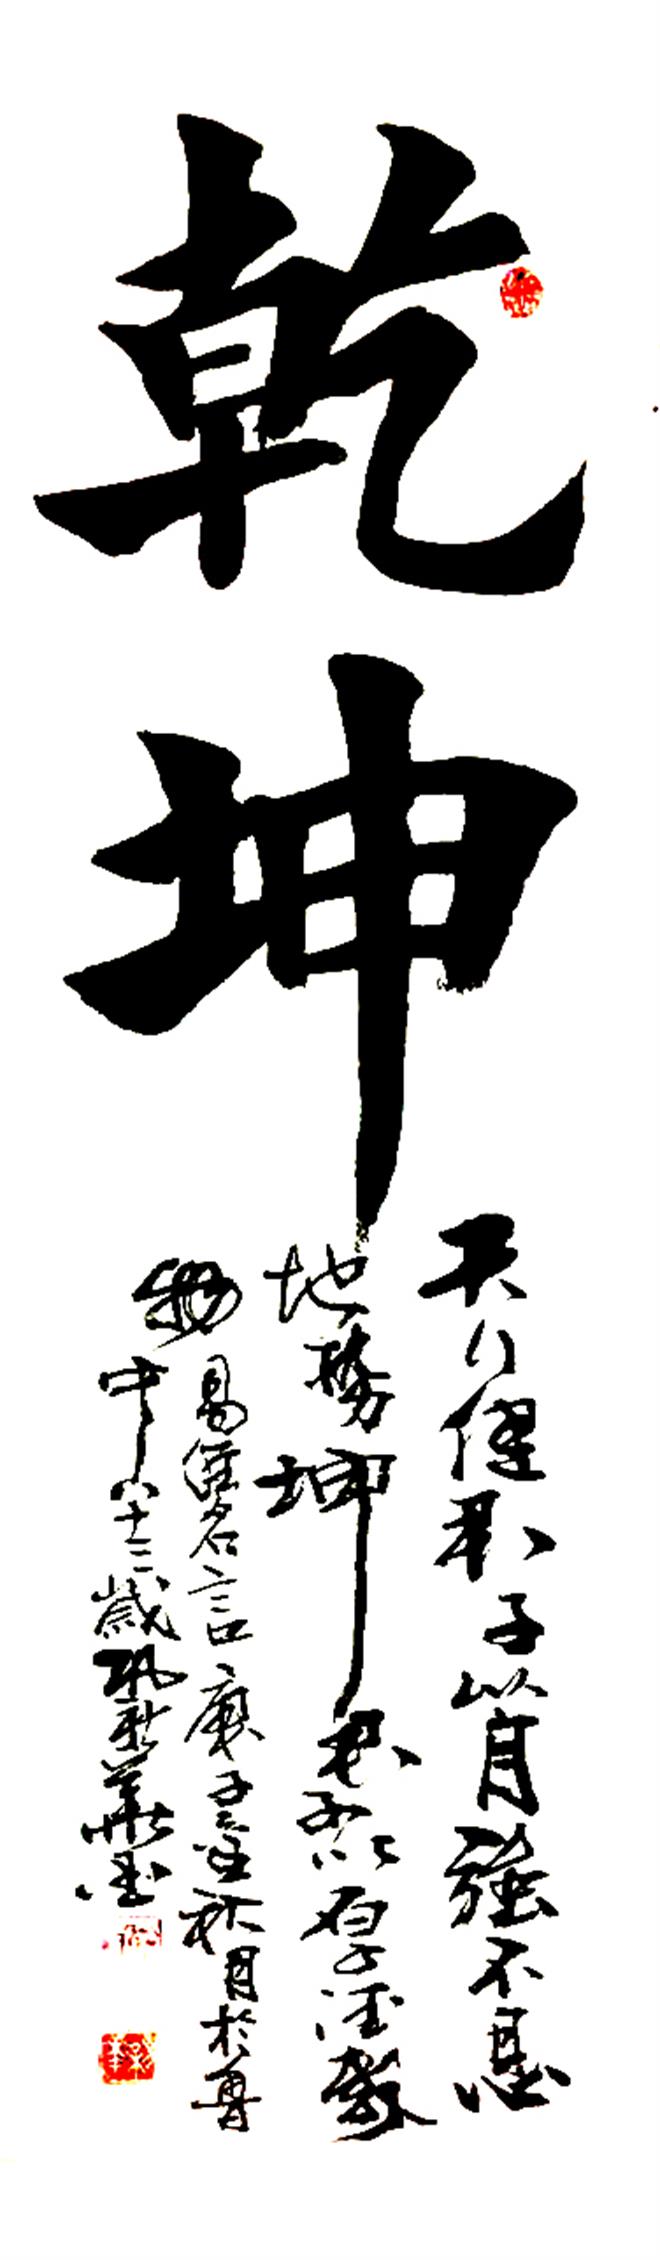 乾坤
天行健君子以自強不息
地勢坤君子以厚德載
物
易經名言庚子金秋月於魯
中八十三歲華書